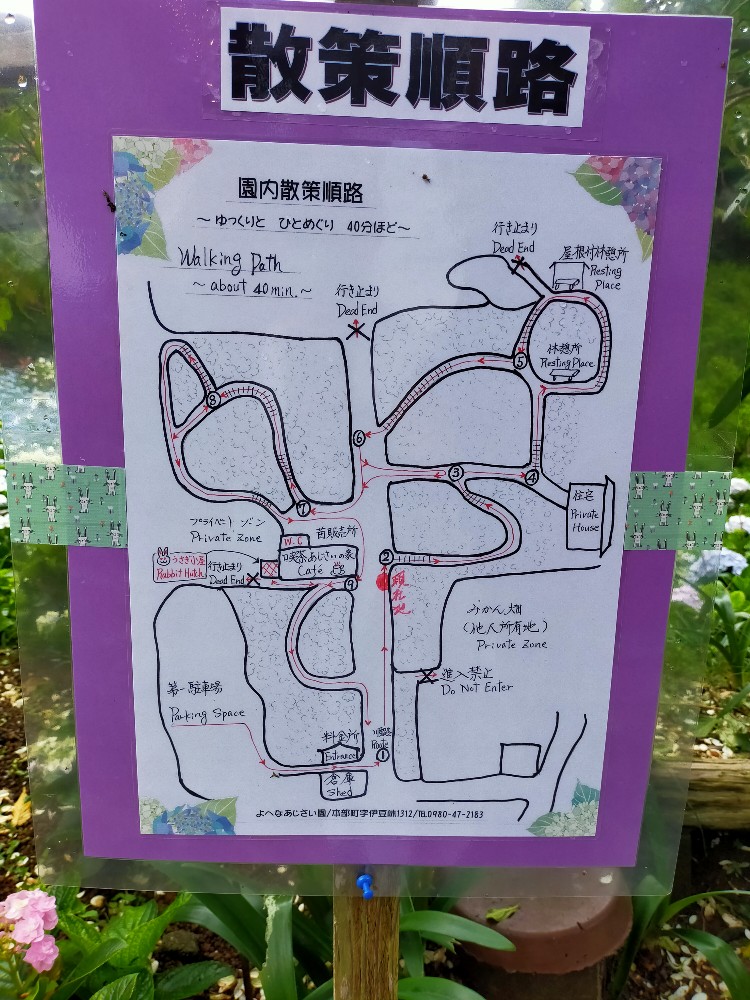 散策順路
園内散策順路
～ ゆっくりと ひとめぐり 40分ほど～
Walking Path
～ about 40 min. ～
行き止まり
Dead End
行き止まり
Dead End
屋根付休憩所
Resting
Place
休憩所
Resting Place
⑤
⑧
⑥
③
④
⑦
住宅
Private
House
プライベート ゾーン
Private zone
W.C
苗販売所
喫茶あじさいの家
Café
うさぎ小屋
Rabbit Hutch
行き止まり
Dead End
⑨
②
現在地
みかん畑
(他人所有地)
Private zone
進入禁止
Do Not Enter
第一駐車場
Parking Space
料金所
Entrance
順路
Route
①
倉庫
Shed
よへなあじさい園/本部町字伊豆味1312/TEL0980-47-2183